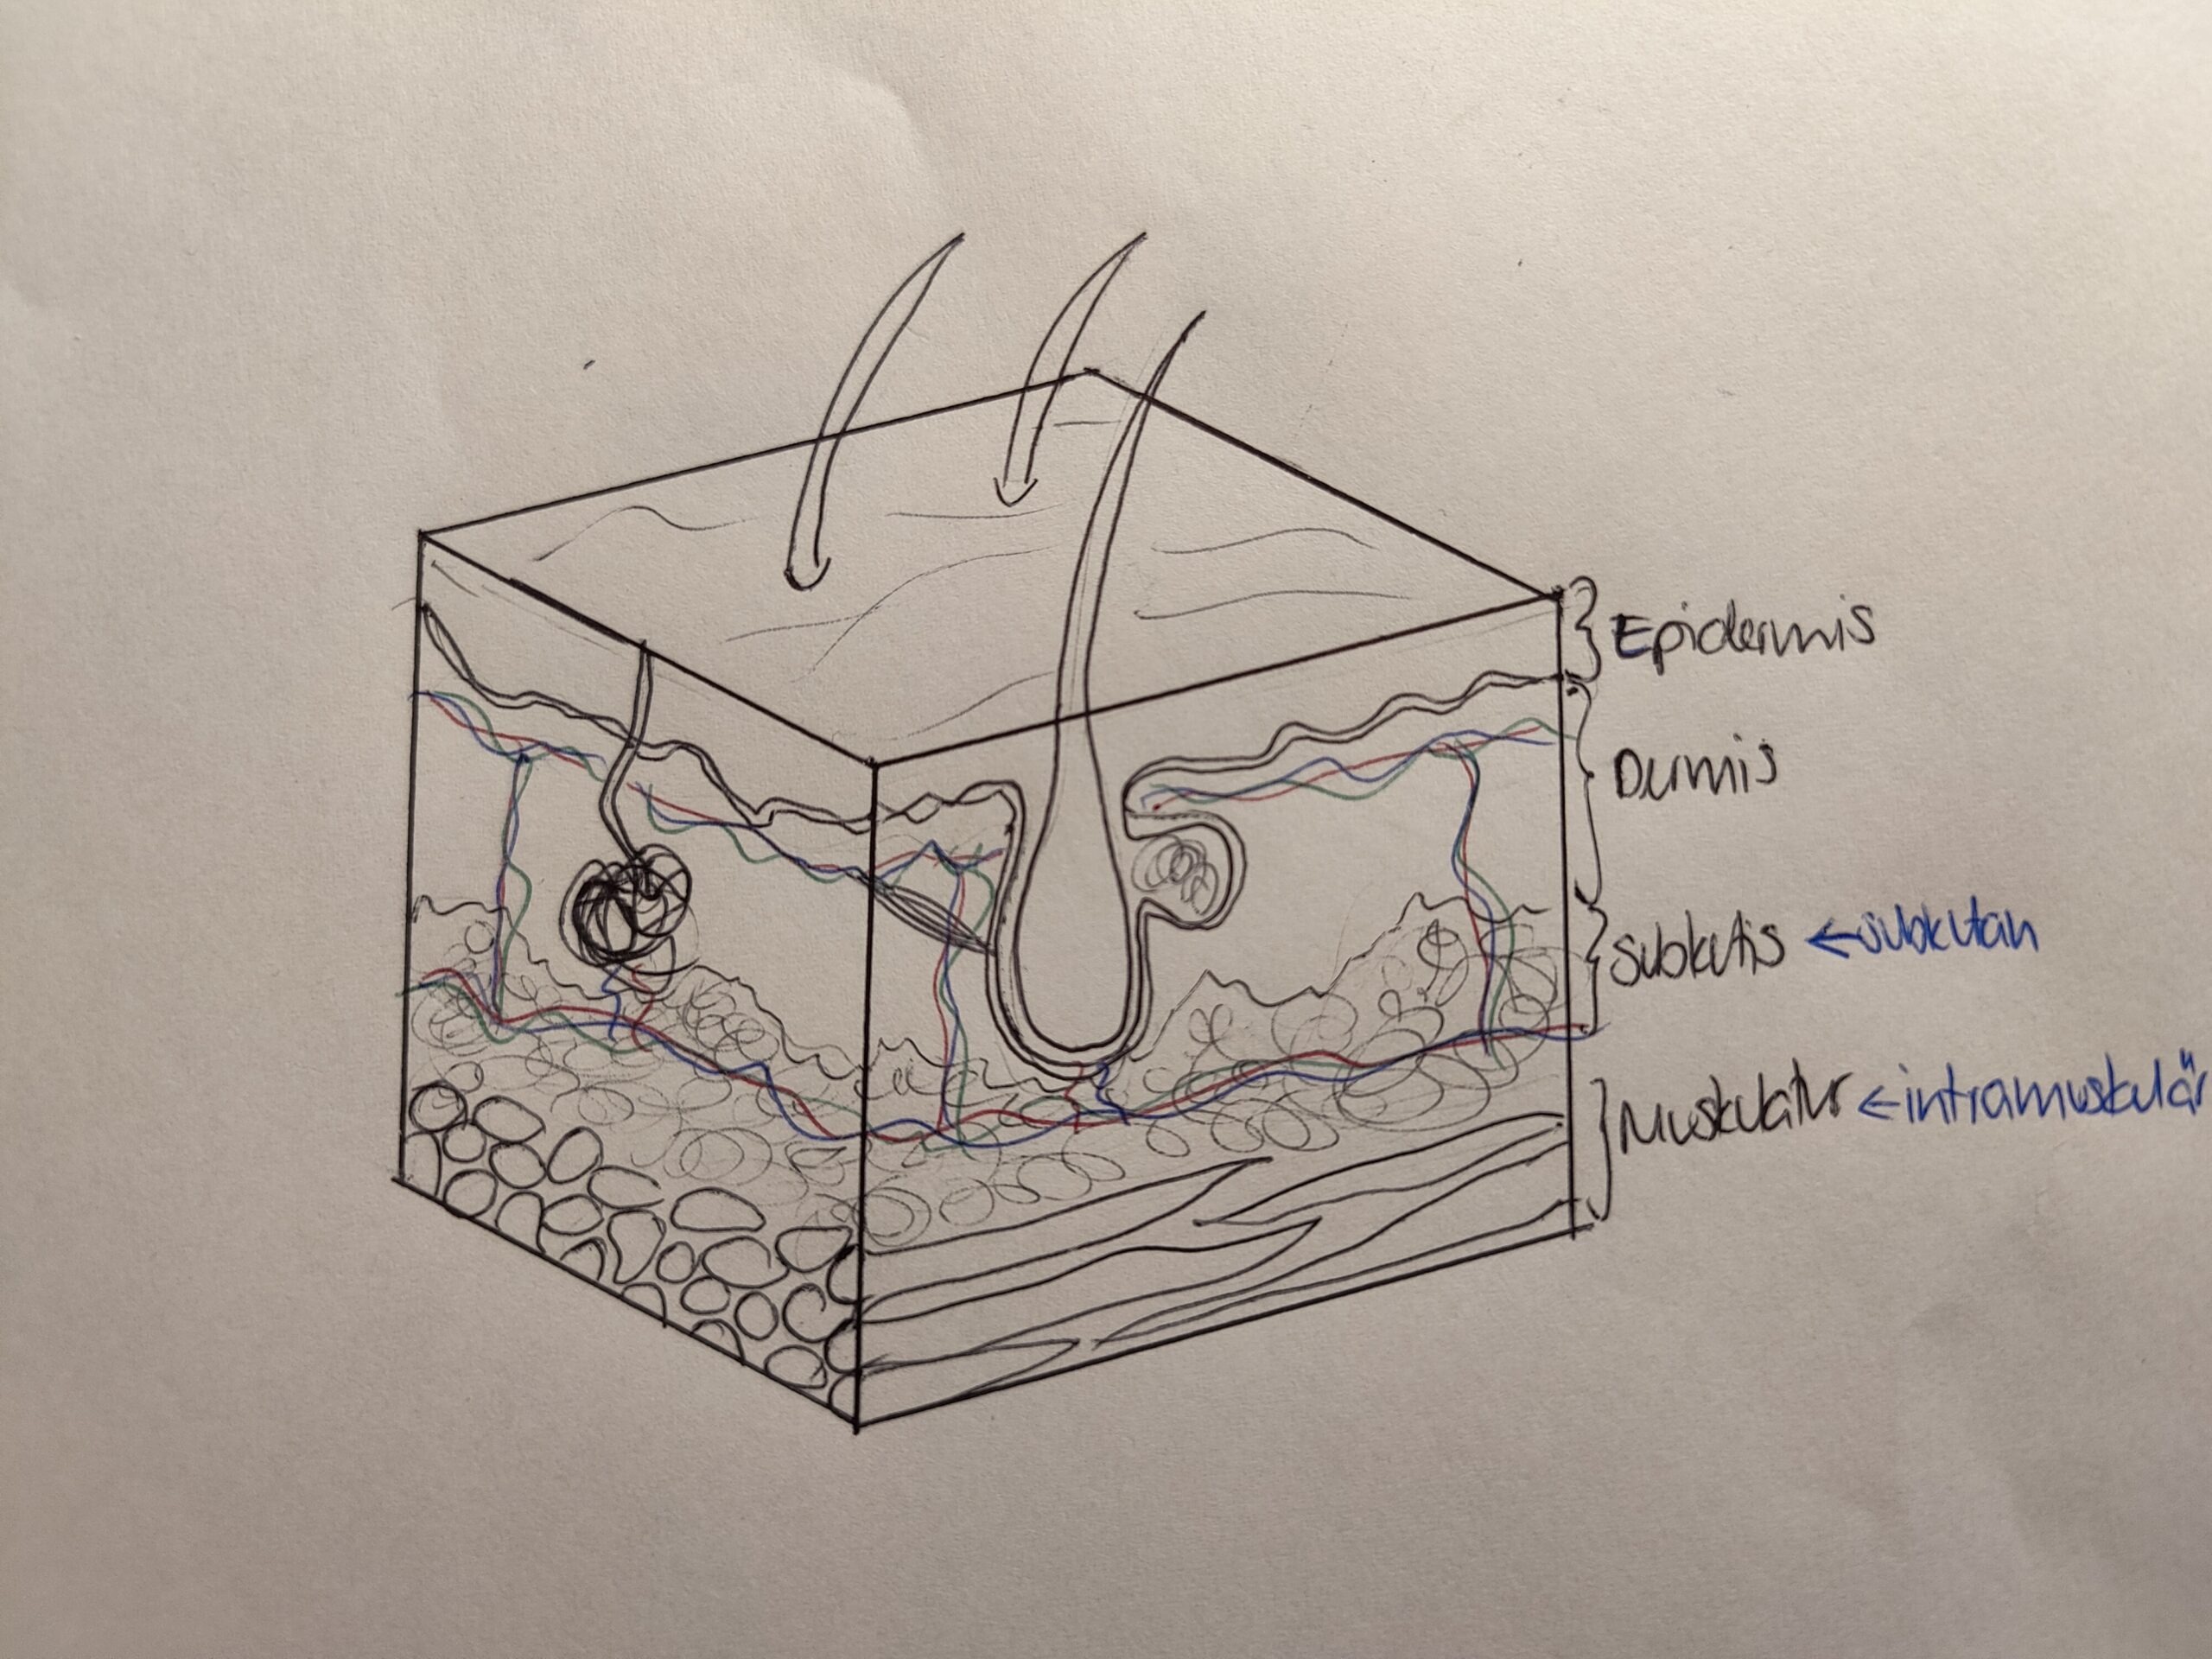 Epidermis
Dermis
Subkutis ← subkutan
Muskulatur ← intramuskulär